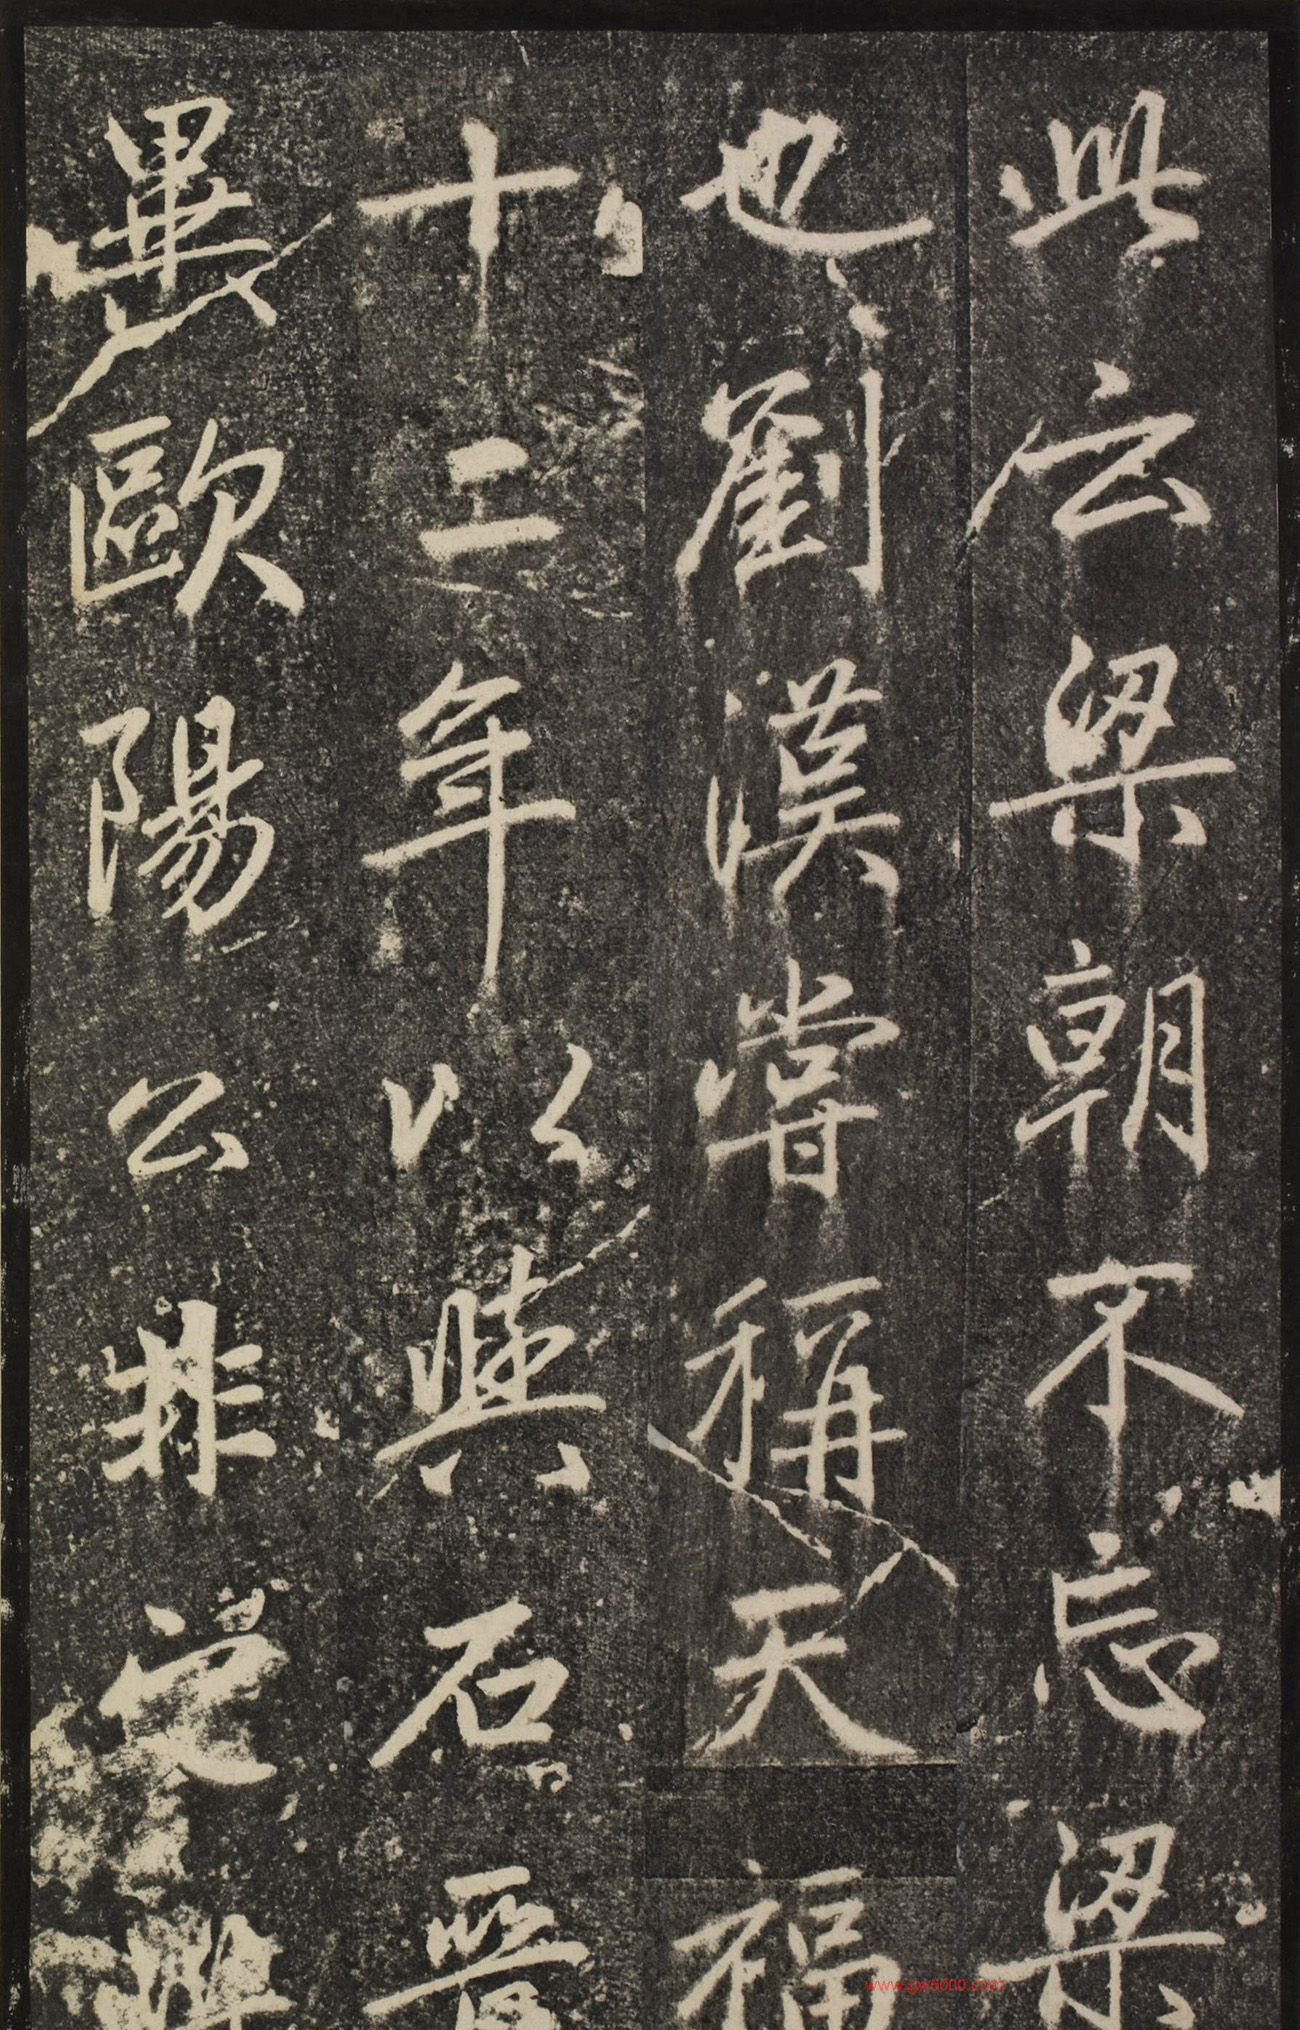 此云梁朝不忘梁
也劉漢嘗稱天福
十二年以與石晉
畢歐陽公非
www.gw5000.com